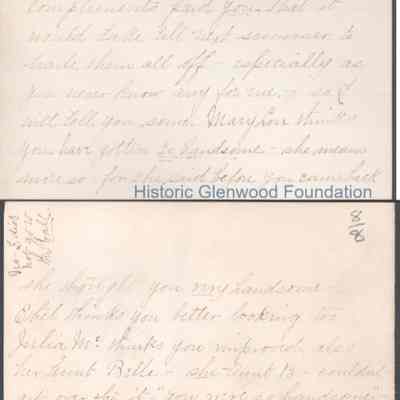 compliments paid you that it
would take till next summer to
trade them all off - especially as
you never know any for me - so I'll
not tell you some. Mary Lou thinks
you have gotten so handsome - she means
more so - for she said before you came back
Historic Glenwood Foundation
No I did
not go to
the ball.
8/8
she thought you very handsome -
Ethel thinks you better looking too
Julia Mc thinks you improved also
her Aunt Belle - she Aunt B - couldn't
get over the it "you were so handsome" -